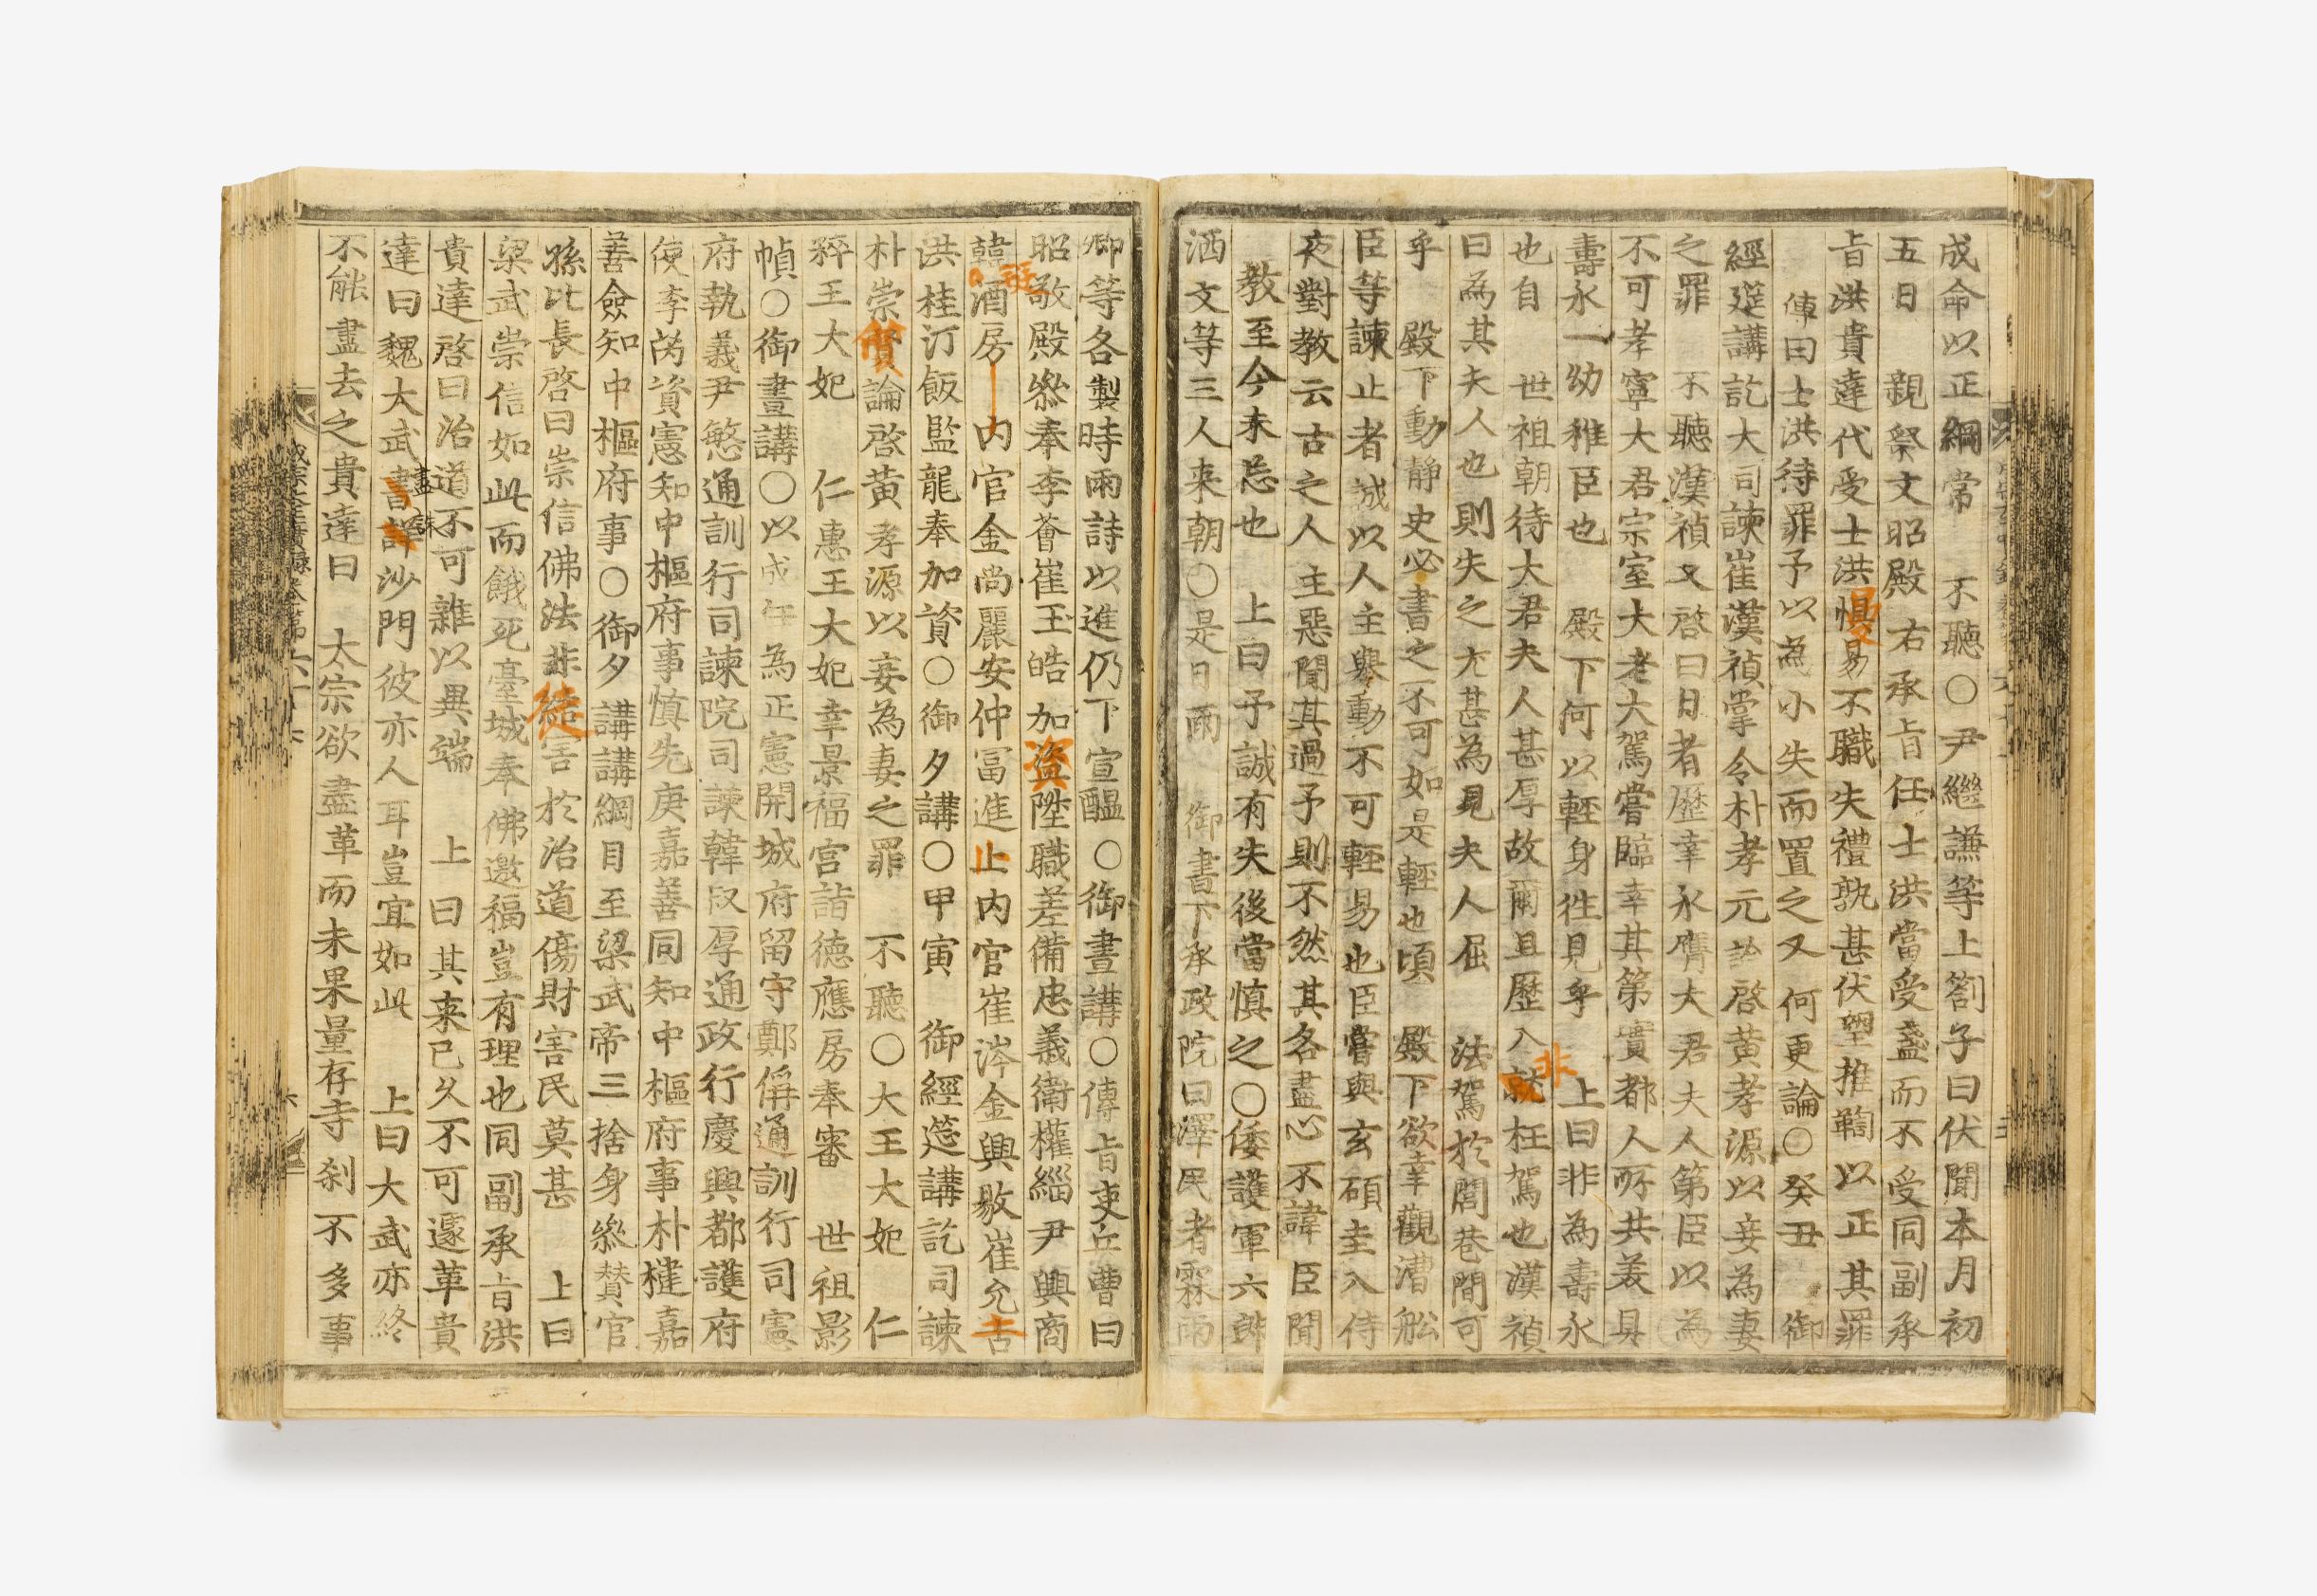 成命以正綱常 不聽○尹繼謙等上劄子曰伏聞本月初
五日 親祭文昭殿右承旨任士洪當受盞而不受同副承
旨洪貴達代受士洪慢易不職失禮孰甚伏望推鞫以正其罪
傳曰士洪待罪予以為小失而置之又何更論○癸丑 御
經筵講訖大司諫崔漢禎掌令朴孝元論啓黃孝源以妾為妻
之罪 不聽漢禎又啓曰日者歷幸永膺大君夫人第臣以為
不可孝寧大君宗室大老大駕嘗臨幸其第實都人所共羨具
壽永一幼稚臣也 殿下何以輕身往見乎 上曰非為壽永
也自 世祖朝待大君夫人甚厚故爾且歷入非枉駕也漢禎
曰為其夫人也則失之尤甚為見夫人屈 法駕於閭巷間可
乎 殿下動靜史必書之不可如是輕也頃 殿下欲幸觀漕舩
臣等諫止者誠以人主擧動不可輕易也臣嘗與玄碩圭入侍
夜對教云古之人主惡聞其過予則不然其各盡心不諱臣聞
教至今未忘也 上曰予誠有失後當愼之○倭護軍六郎
洒文等三人來朝○是日雨 御書下承政院曰澤民者霖雨
卿等各製時雨詩以進仍下宣醞○御晝講○傳旨吏兵曹曰
昭敬殿參奉李薈崔玉皓加資陞職差備忠義衛權緇尹興商
韓班酒房內官金尚麗安仲冨進止內官崔涔金興敬崔允吉
洪桂汀飯監龍奉加資○御夕講○甲寅 御經筵講訖司諫
朴崇質論啓黃孝源以妾為妻之罪 不聽○大王大妃 仁
粹王大妃 仁惠王大妃幸景福宮詣德應房奉審 世祖影
幀○御晝講○以成任為正憲開城府留守鄭偁通訓行司憲
府執義尹慜通訓行司諫院司諫韓叔厚通政行慶興都護府
使李芮資憲知中樞府事愼先庚嘉善同知中樞府事朴楗嘉
善僉知中樞府事○御夕講講綱目至梁武帝三捨身參贊官
孫比長啓曰崇信佛法非徒害於治道傷財害民莫甚 上曰
梁武崇信如此而餓死臺城奉佛邀福豈有理也同副承旨洪
貴達啓曰治道不可雜以異端 上曰其來已久不可遽革貴
達曰魏大武盡誅沙門彼亦人耳豈宜如此 上曰大武亦終
不能盡去之貴達曰 太宗欲盡革而未果量存寺刹不多事